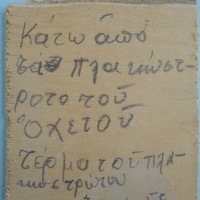 Κάτω ἀπό
τὸ πλακόστ-
ρωτο τοῦ
Ὀχετοῦ
Τέρμα τοῦ πλα-
κοστρώτου